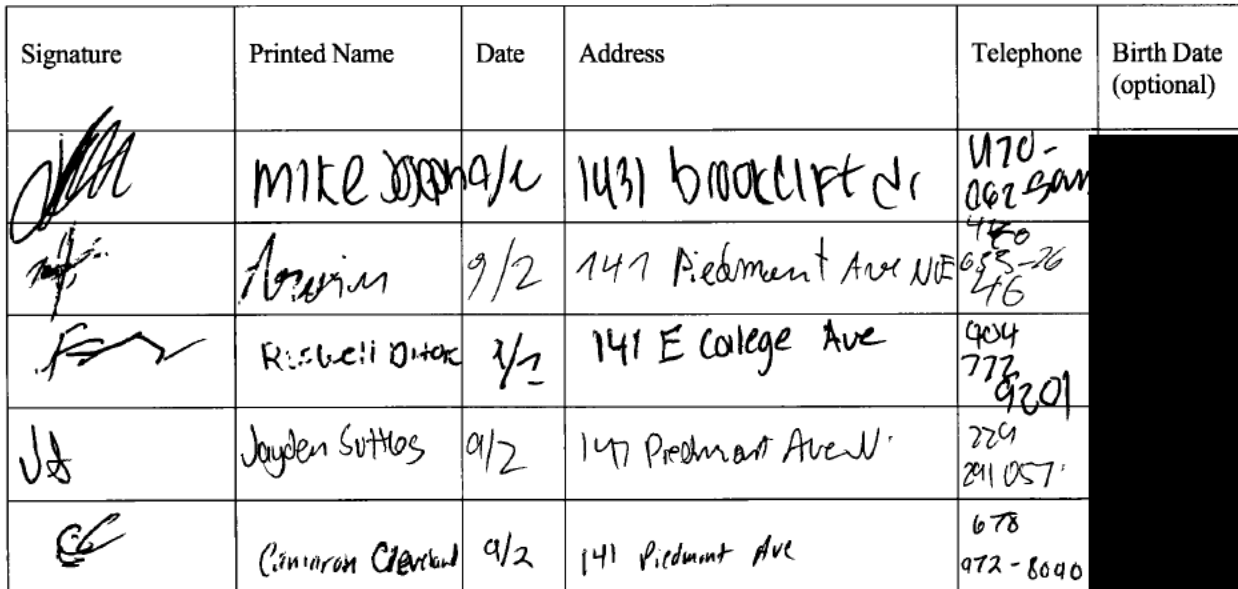 Signature Printed Name Date Address Telephone Birth Date
(optional)
Mike Joseph 9/2 1431 brookclift dr 470-
062
9/2 141 Piedmont Ave NE 470
655-26
46
141 E College Ave 904
772
9201
Jayden Suttles 9/2 147 Piedmont Ave N 229
291 057
Cimarron Cleveland 9/2 141 Piedmont Ave 678
972-8090